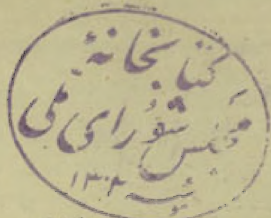 کتابخانهٔ
مجلس شورای ملی